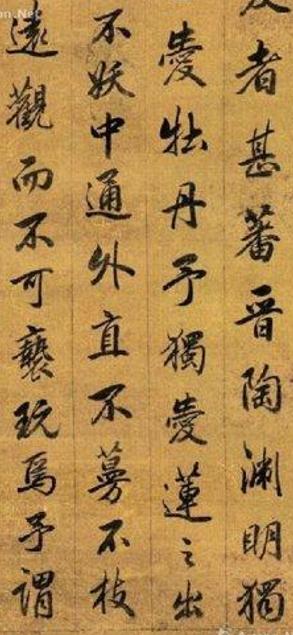 者甚蕃晋陶渊明獨
愛牡丹予獨愛蓮之出
不妖中通外直不蔓不枝
遠觀而不可褻玩焉予謂
on.Net